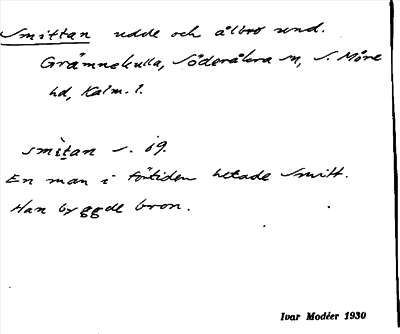 Smittan udde och ålbro sund.
Grämnekulla, Söderåkra sn, S. Möre
hd, Kalm. l.
smìtan s. ig.
En man i förtiden hetade Smitt.
Han byggde bron.
Ivar Modéer 1930